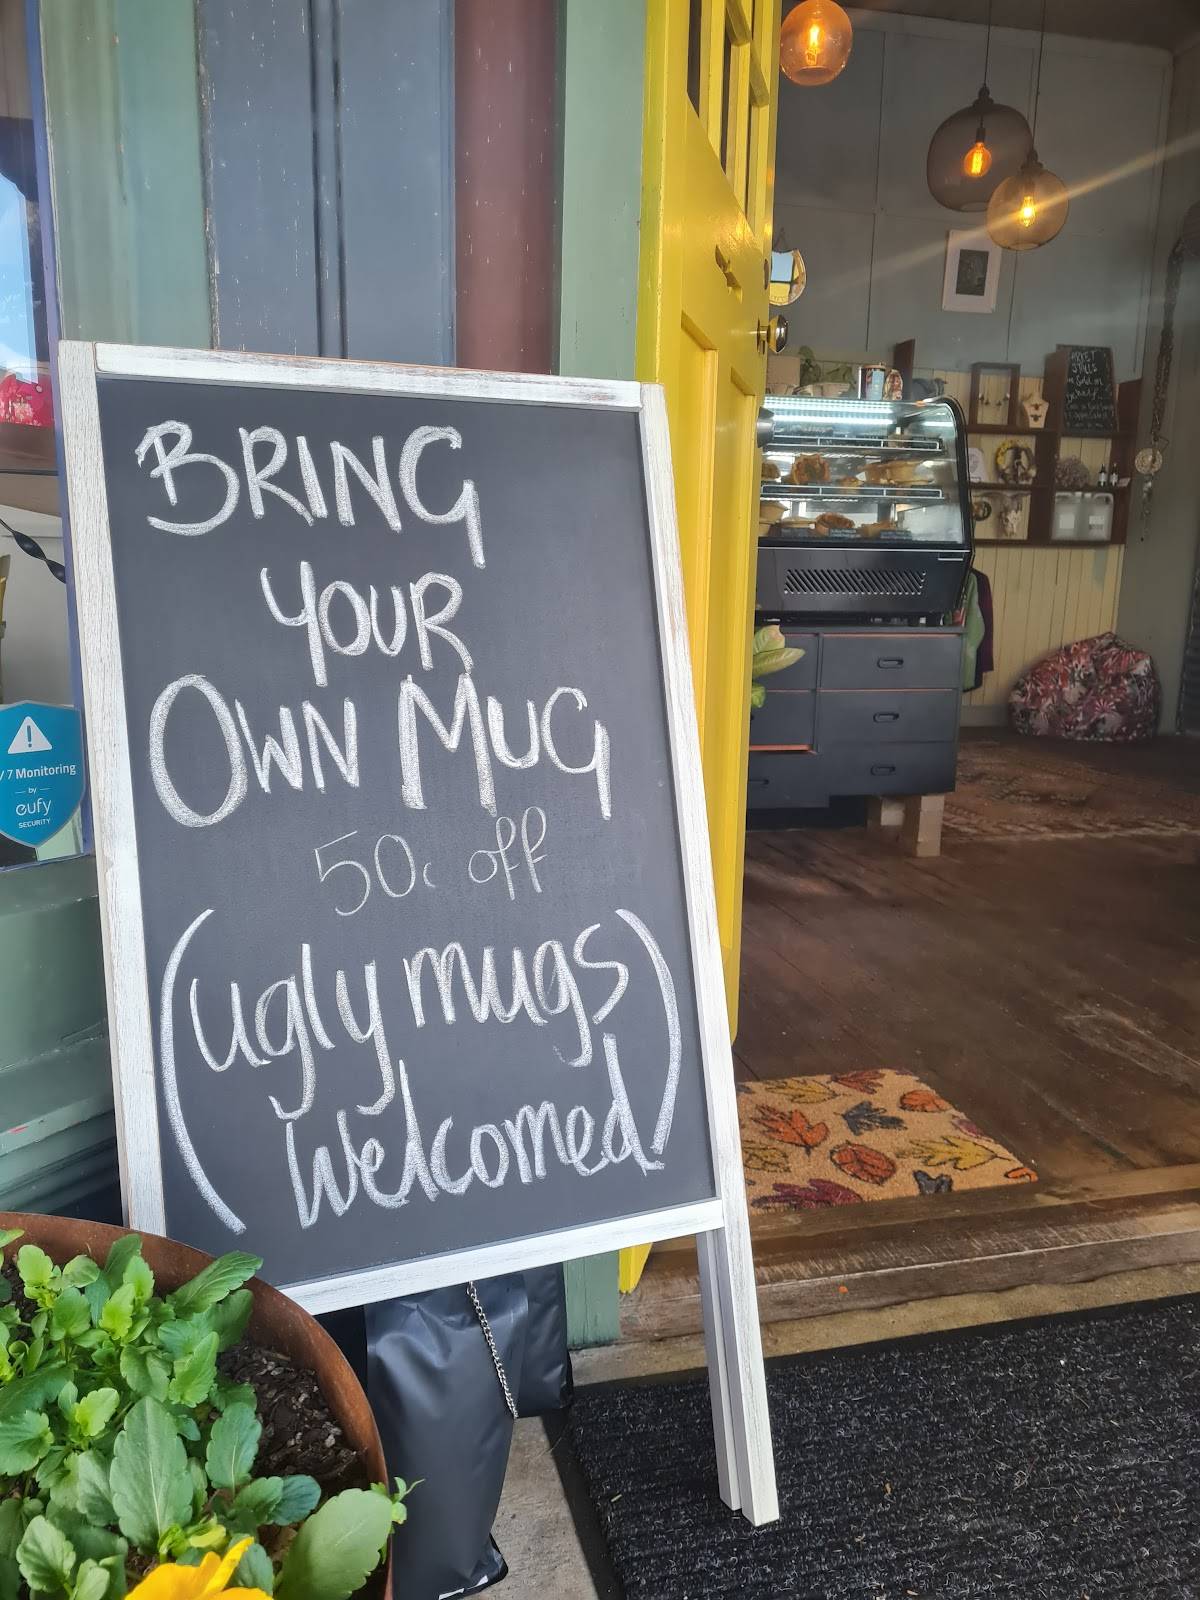 BRING
YOUR
OWN MUG
50c off
(ugly mugs
welcomed)
/7 Monitoring
by
eufy
SECURITY